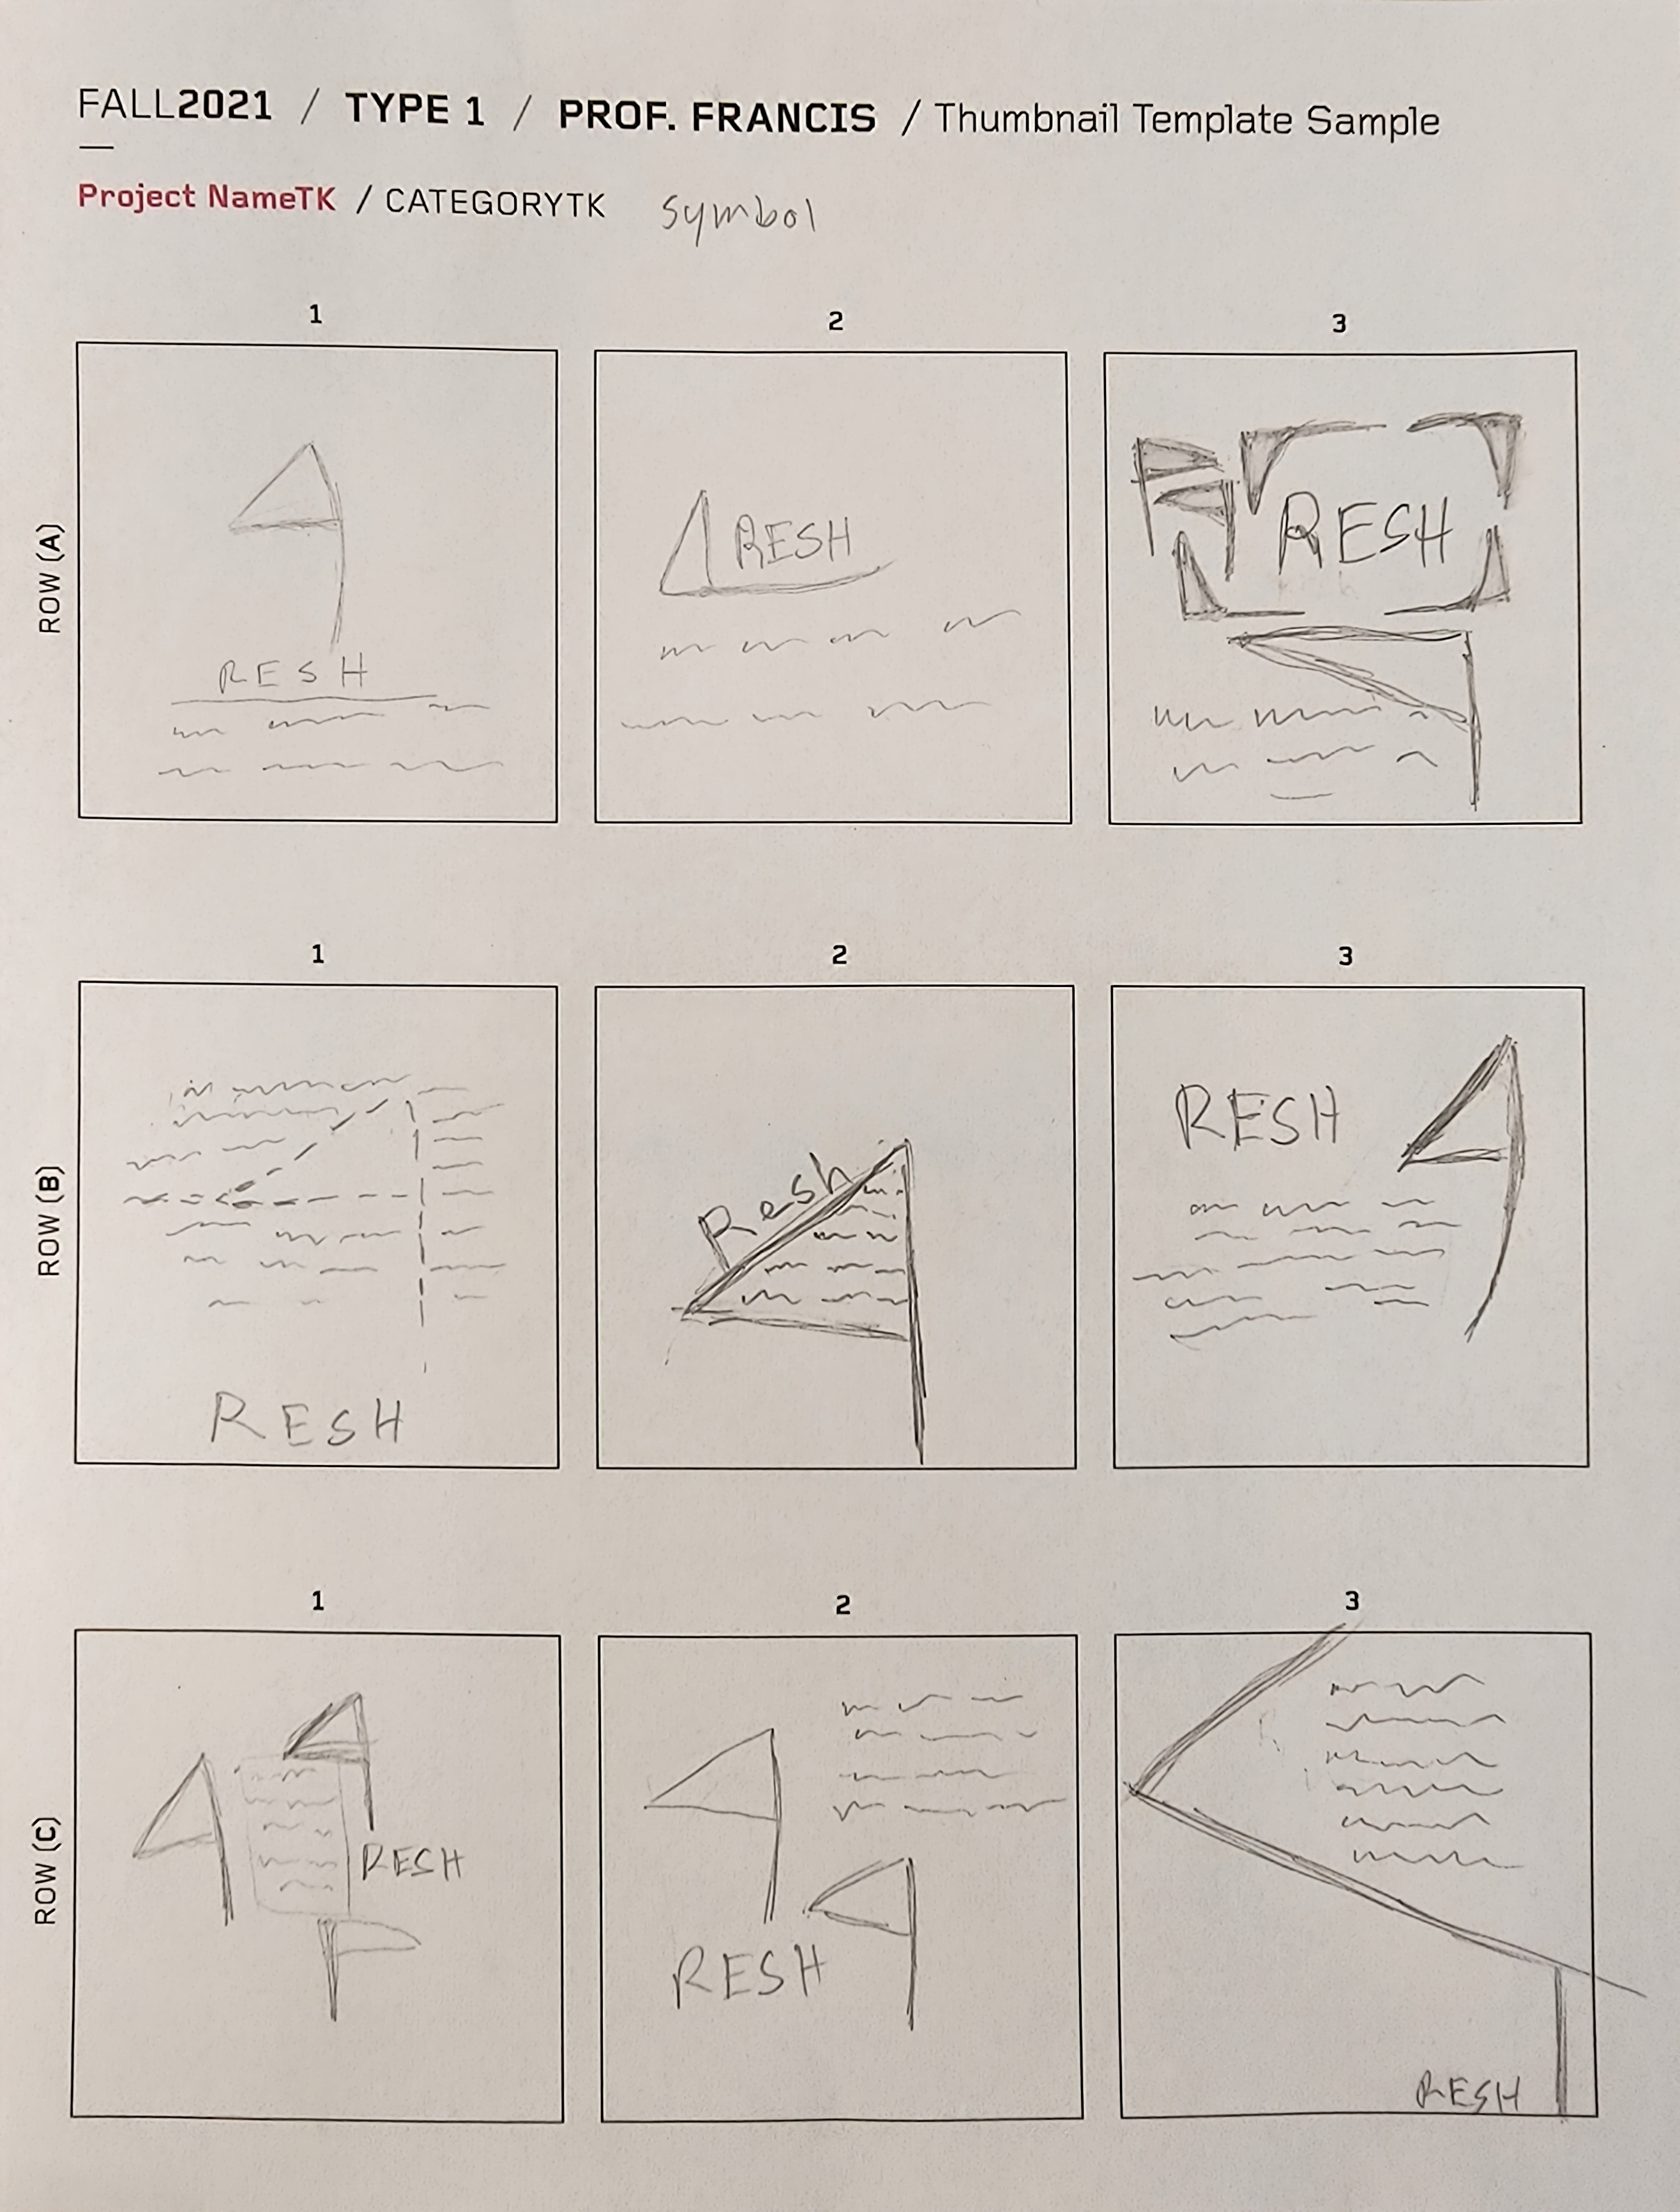 FALL2021 / TYPE 1 / PROF. FRANCIS / Thumbnail Template Sample
Project NameTK / CATEGORYTK symbol
1 2 3
ROW (A)
RESH
RESH
RESH
1 2 3
ROW (B)
RESH
Resh
RESH
1 2 3
ROW (C)
RESH
RESH
RESH